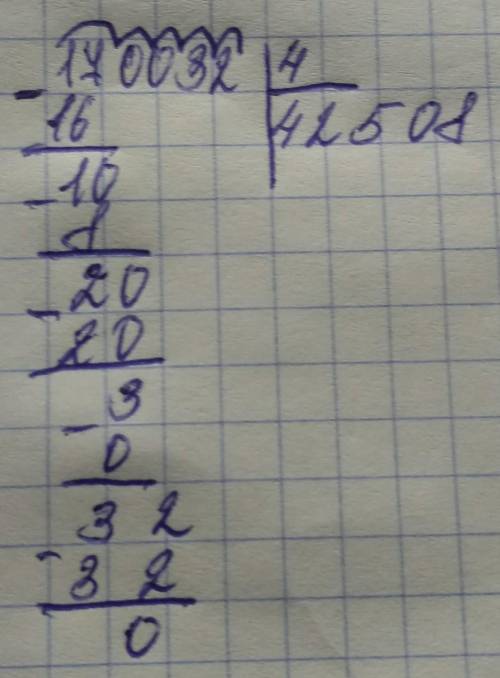 170032 4
16 42508
10
8
20
20
3
0
32
32
0